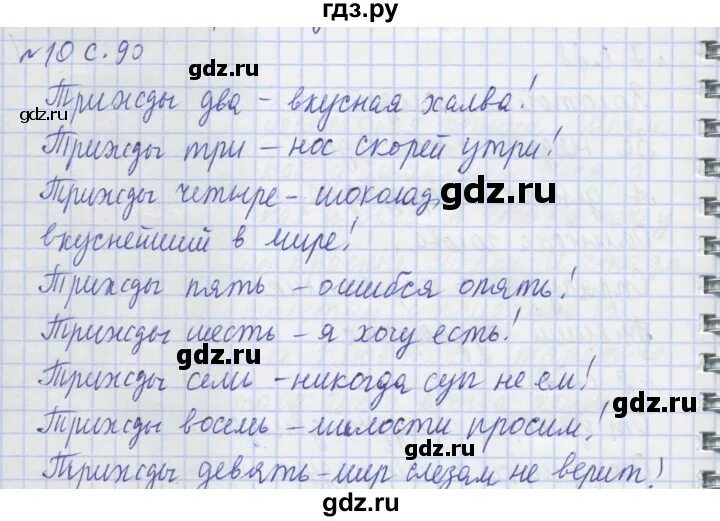 гдз.ру
№10 с.90
gdz.ru
gdz.ru
Трижды два – вкусная халва!
Трижды три – нос скорей утри!
Трижды четыре – шоколад,
gdz.ru
вкуснейший в мире!
gdz.ru
Трижды пять – ошибся опять!
Трижды шесть – я хочу есть!
gdz.ru
Трижды семь – никогда суп не ем!
gdz.ru
Трижды восемь – милости просим!
gdz.ru
Трижды девять – мир слезам не верит!
gdz.ru